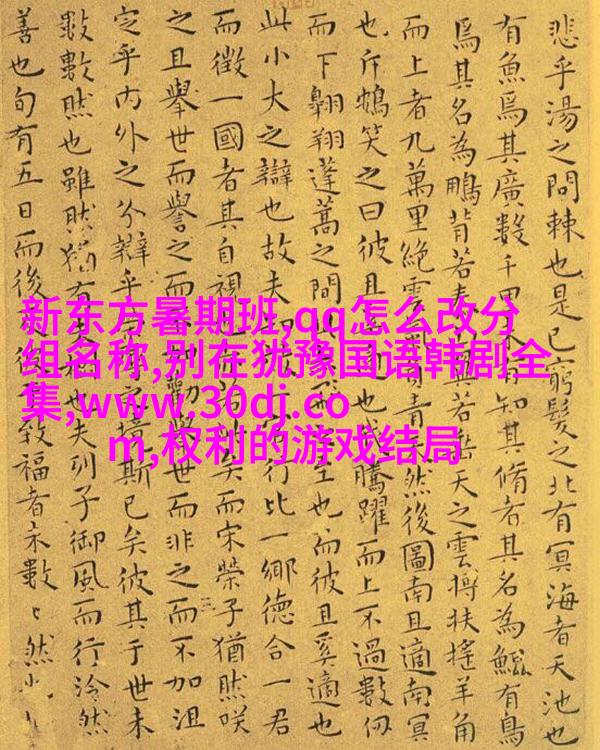 新东方暑期班,qq怎么改分
组名称,别在犹豫国语韩剧全
集,www.30dj.co
m,权利的游戏结局
悲乎湯之問棘也是已窮髮之北有冥海者天池也
有魚焉其廣數千里有知其脩者其名為鯤有鳥
焉其名為鵬背若若垂天之雲摶扶搖羊角
而上者九萬里絕雲氣青天然後圖南且適南冥
也斥鴳笑之曰彼且也我騰躍而上不過數仞
而下翱翔蓬蒿之間至也而彼且奚適也
此小大之辯也故夫行比一鄉德合一君
而徵一國者其自視也矣而宋榮子猶然咲
之且舉世而譽之而不加勸舉世而非之而不加沮
定乎內外之分辯乎之境斯已矣彼其于世未
數數然也雖然猶有也夫列子御風而行泠然
善也旬有五日而後致福者未數〻然也